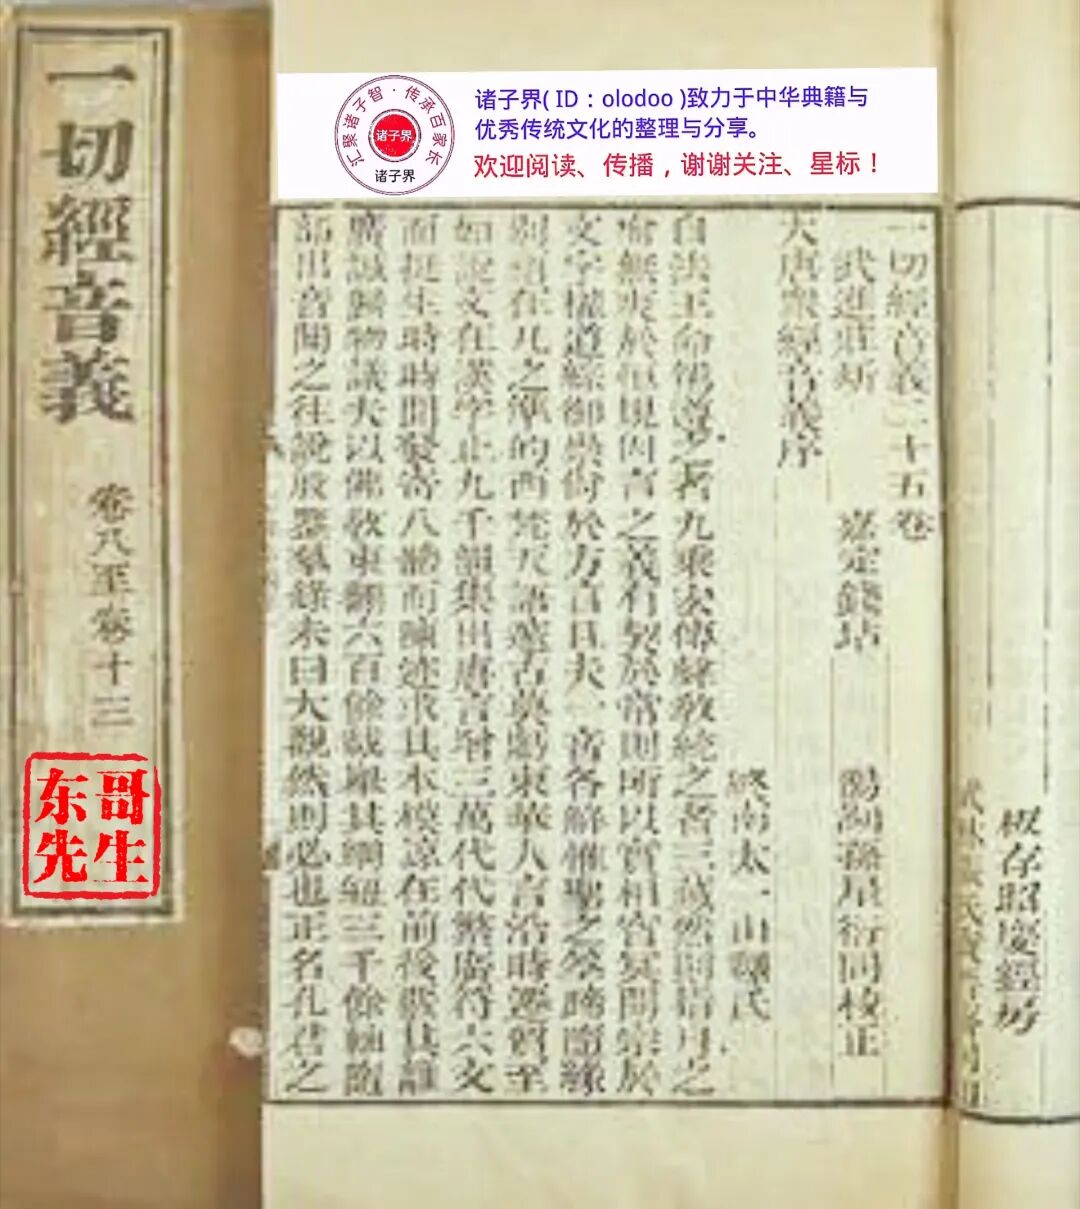 一切經音義
卷八至卷十三
东哥
先生
汇聚诸子智·传承百家长
诸子界
诸子界
诸子界( ID：olodoo )致力于中华典籍与
优秀传统文化的整理与分享。
欢迎阅读、传播，谢谢关注、星标！
板存昭慶經房
一切經音義二十五卷
武進莊炘 嘉定錢坫 陽湖孫星衍同校正
大唐眾經音義序
終南太一山釋氏
自法王命 之者九乘 傳 教統之者三藏然則指月之
喻無爽於恒規因言之義有契於常則所以實相 冥開宗於
文字權道綜御崇尚於方言且夫一音各解惟聖之筌蹄隨緣
別 在凡之準的西梵天語邃古莫虧東華人言沿時遷貿至
如說文在漢字止九千韻集出唐言增三萬代代繁廣符六文
而挺生時時間發寄八體而陳迹求其本模遠在前後歎其雜
廣誠歸物議夫以佛教東翻六百餘載舉其綱紐三千餘軸隨
部出音聞之往說殷鑒 錄未曰大觀然則必也正名孔君之